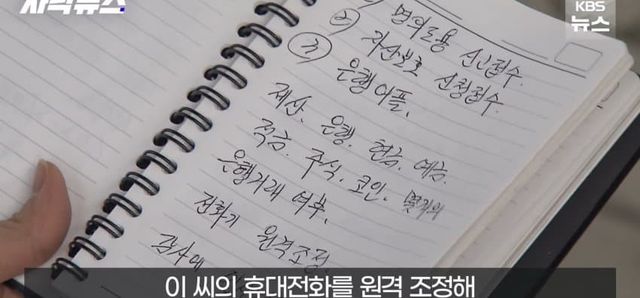 자막뉴스
KBS
뉴스
명의도용 신고접수.
② 자산보호 신청접수.
③ 은행어플.
재산. 은행. 현금. 예금.
적금. 주식. 코인.
은행거래 여부.
전화기 원격조정.
이 씨의 휴대전화를 원격 조정해